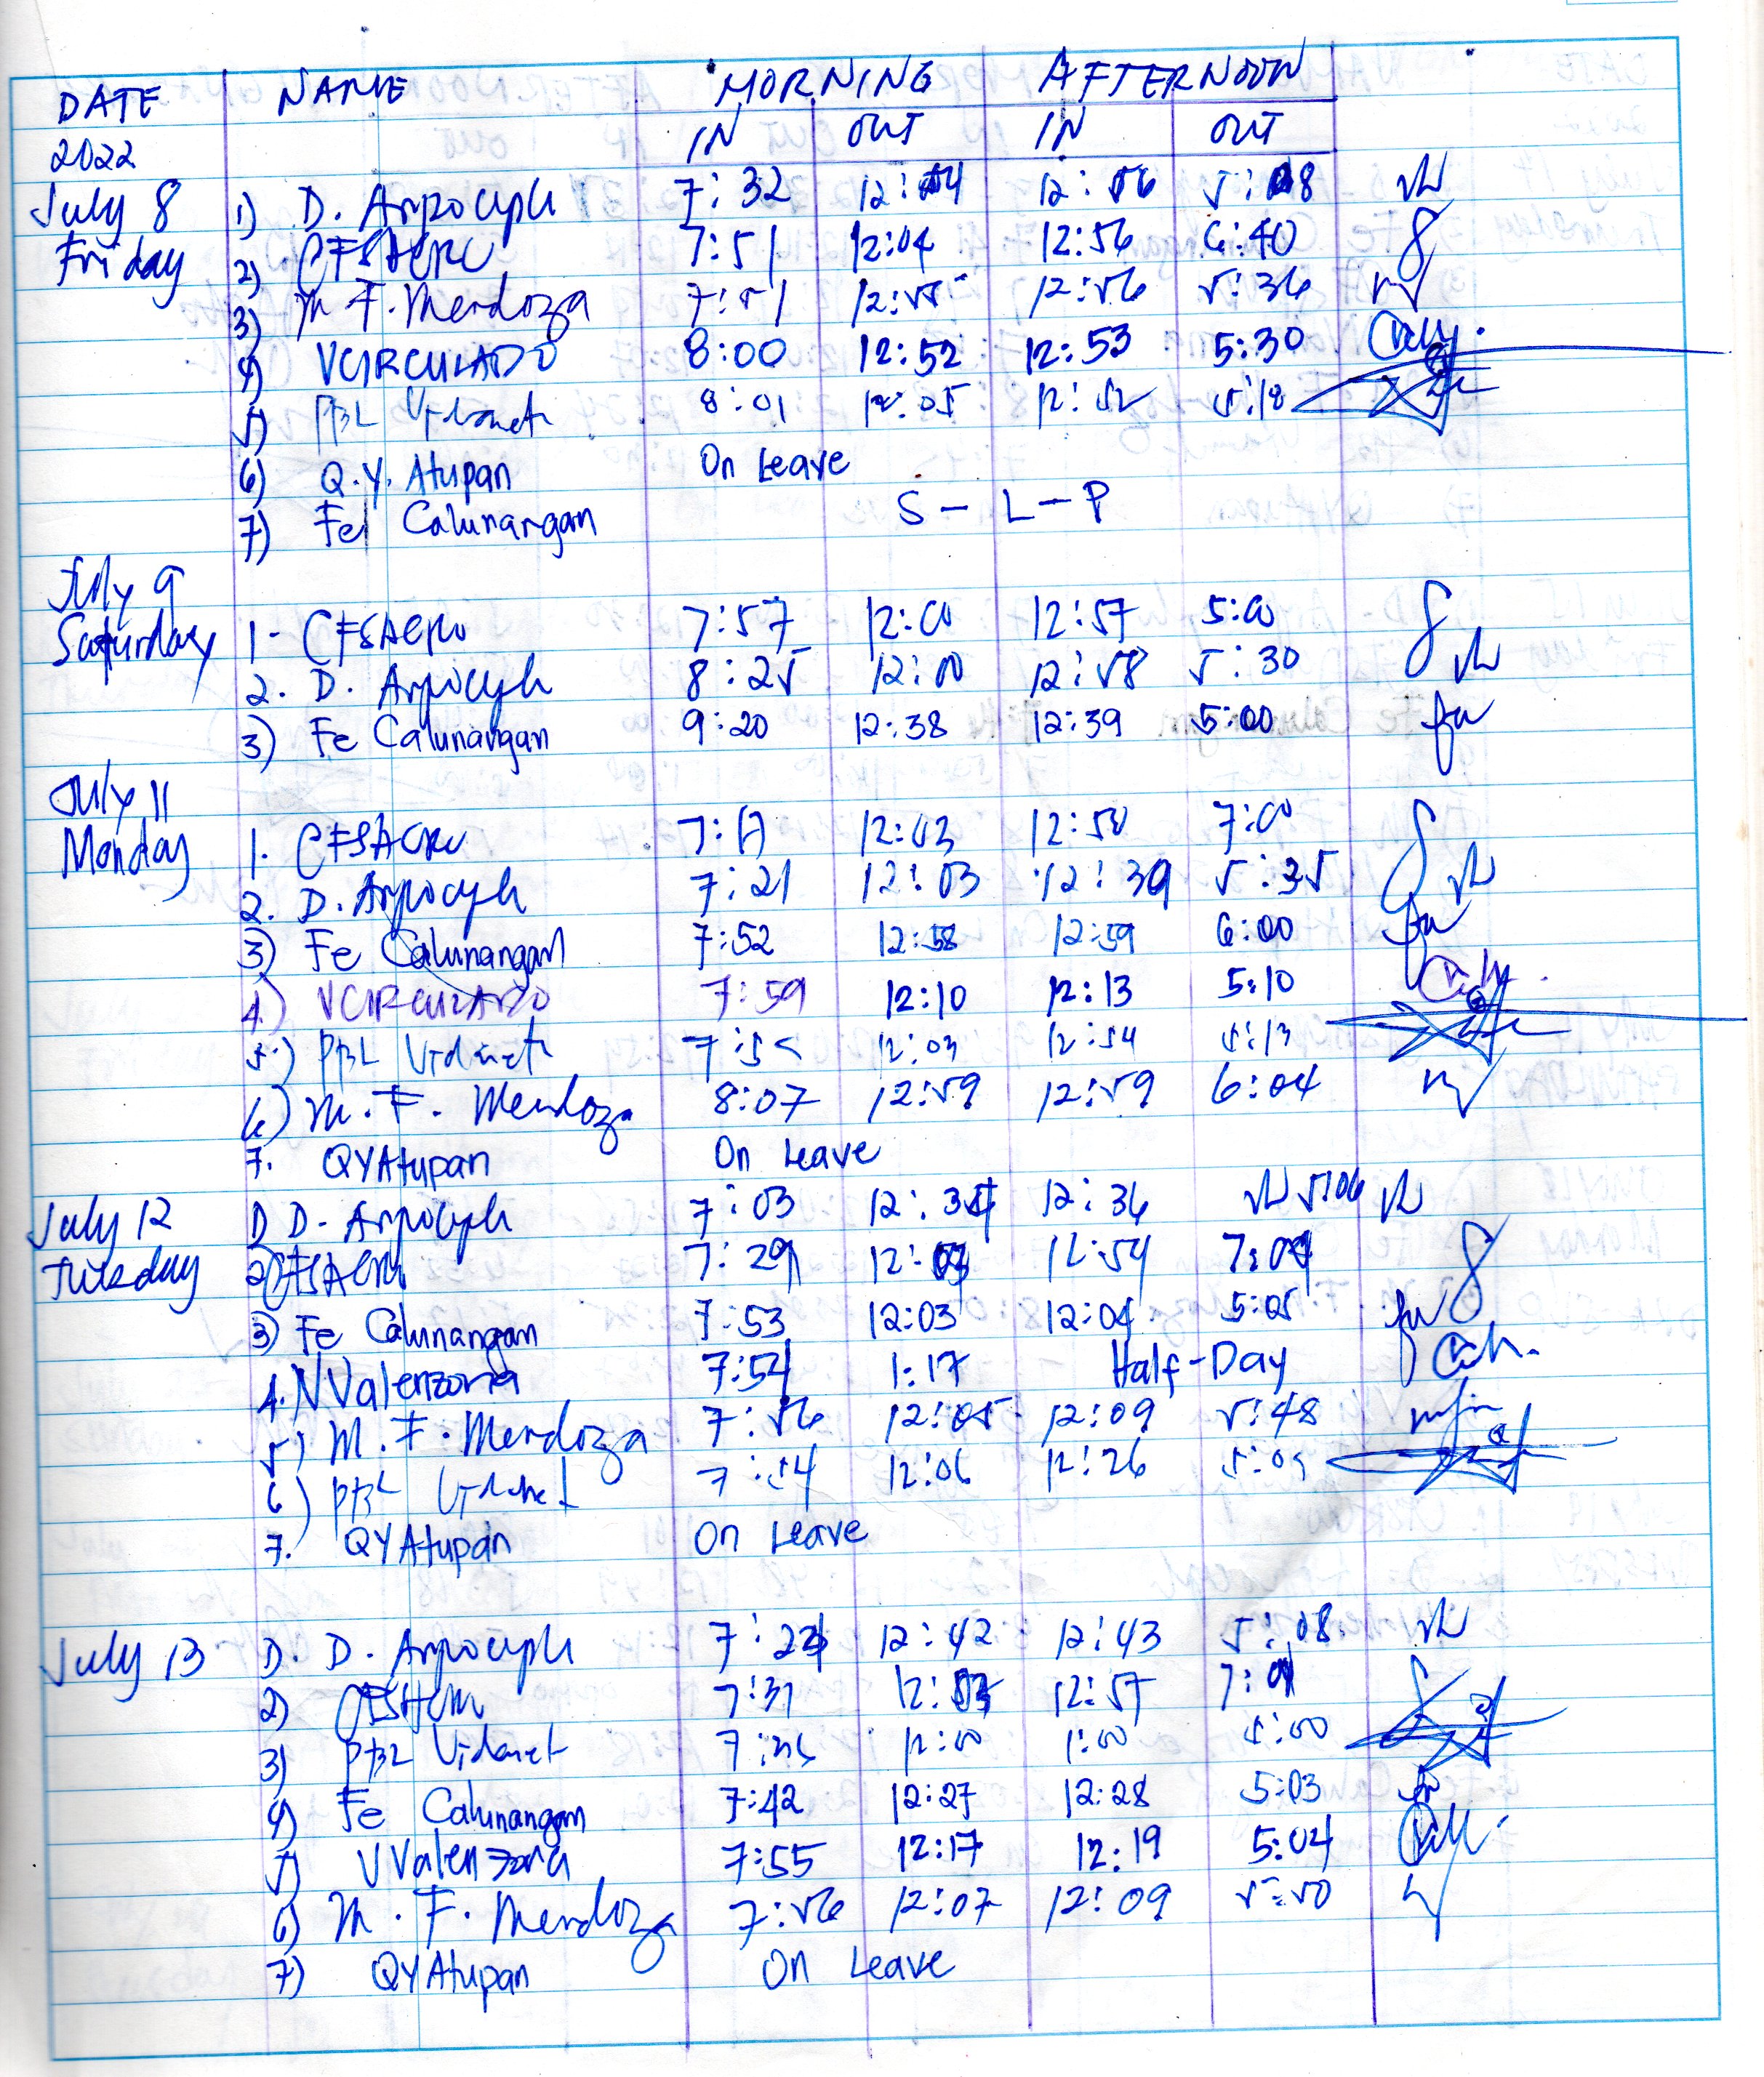 DATE NAME MORNING AFTERNOON
2022 IN OUT IN OUT
July 8 1) D. 7:32 12:54 12:56 5:08
Friday 2) 7:51 12:04 12:56 6:40
3) M. F. Mendoza 7:51 12:55 12:56 5:36
4) VCIRCULADO 8:00 12:52 12:53 5:30
5) PBL 8:01 12:05 12:52 5:18
6) Q.Y. Atupan On Leave
7) Fe Calunangan S - L - P
July 9
Saturday 1- 7:57 12:00 12:57 5:00
2. D. 8:25 12:00 12:58 5:30
3) Fe Calunangan 9:20 12:38 12:39 5:00
July 11
Monday 1. 12:03 12:50 7:00
2. D. 7:21 12:03 12:39 5:35
3) Fe Calunangan 7:52 12:58 12:59 6:00
4.) VCIRCULADO 7:59 12:10 12:13 5:10
5.) PBL 12:03 12:54 5:13
6) M. F. Mendoza 8:07 12:59 12:59 6:04
7. QYAtupan On Leave
July 12 D. 7:03 12:34 12:36 5:06
Tuesday 2) 7:29 12:54
3) Fe Calunangan 7:53 12:03 12:04 5:05
4. VValenzona 7:54 1:17 Half-Day
5) M. F. Mendoza 7:56 12:05 12:09 5:48
6) PBL 7:54 12:06 12:26
7. QYAtupan On Leave
July 13 D. 12:42 12:43 5:08
2) 7:31 12:57
3) PBL 12:00 1:00 5:00
4) Fe Calunangan 7:42 12:27 12:28 5:03
5) VValenzona 7:55 12:17 12:19 5:04
6) M. F. Mendoza 7:56 12:07 12:09 5:50
7) QYAtupan On Leave